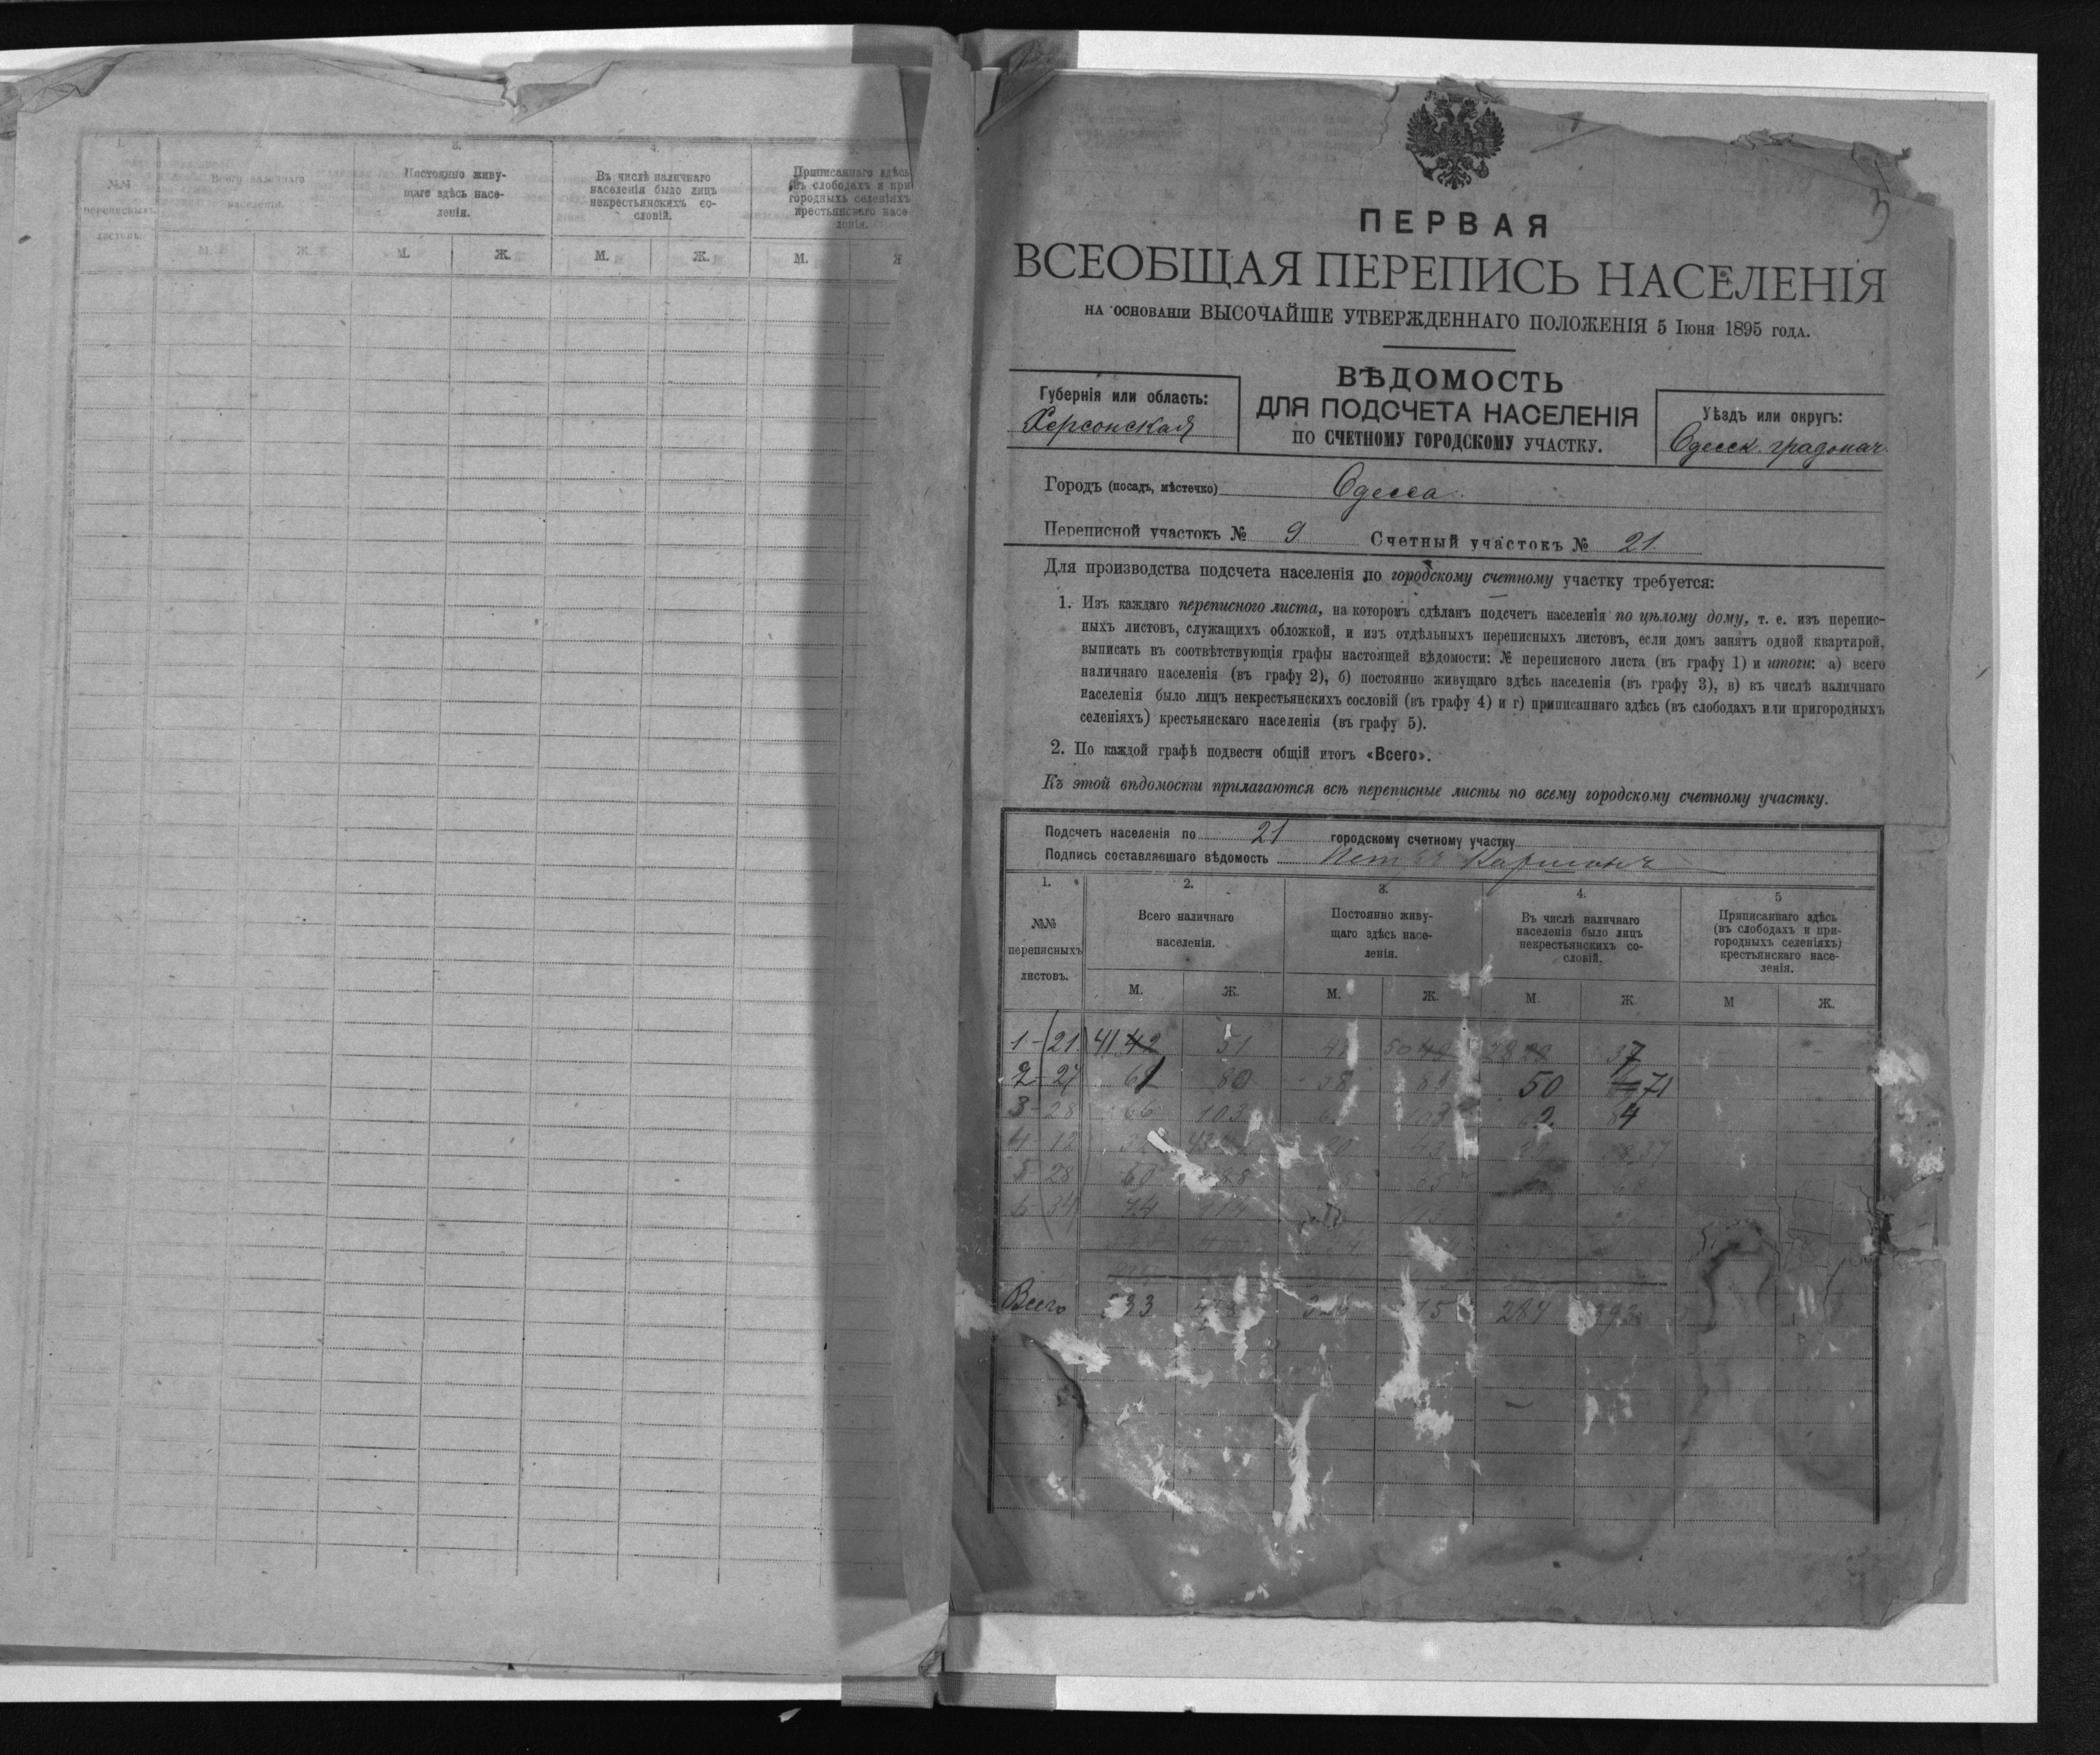 1.
3.
4.
№№
переписныхъ
листовъ.
Всего наличнаго
населенія.
Постоянно живу-
щаго здѣсь насе-
ленія.
Въ числѣ наличнаго
населенія было лицъ
некрестьянскихъ со-
словій.
Приписаннаго здѣсь
(въ слободахъ и при
городныхъ селеніяхъ
крестьянскаго насе-
ленія.
М. Ж. М. Ж. М. Ж. М.
3
ПЕРВАЯ
ВСЕОБЩАЯ ПЕРЕПИСЬ НАСЕЛЕНІЯ
НА ОСНОВАНІИ ВЫСОЧАЙШЕ УТВЕРЖДЕННАГО ПОЛОЖЕНІЯ 5 Іюня 1895 ГОДА.
Губернія или область:
Херсонская
ВѢДОМОСТЬ
ДЛЯ ПОДСЧЕТА НАСЕЛЕНІЯ
ПО СЧЕТНОМУ ГОРОДСКОМУ УЧАСТКУ.
Уѣздъ или округъ:
Одесск. градонач.
Городъ (посадъ, мѣстечко) Одесса.
Переписной участокъ № 9 Счетный участокъ № 21.
Для производства подсчета населенія по городскому счетному участку требуется:
1. Изъ каждаго переписного листа, на которомъ сдѣланъ подсчетъ населенія по цѣлому дому, т. е. изъ перепис-
ныхъ листовъ, служащихъ обложкой, и изъ отдѣльныхъ переписныхъ листовъ, если домъ занятъ одной квартирой,
выписать въ соотвѣтствующія графы настоящей вѣдомости: № переписного листа (въ графу 1) и итоги: а) всего
наличнаго населенія (въ графу 2), б) постоянно живущаго здѣсь населенія (въ графу 3), в) въ числѣ наличнаго
населенія было лицъ некрестьянскихъ сословій (въ графу 4) и г) приписаннаго здѣсь (въ слободахъ или пригородныхъ
селеніяхъ) крестьянскаго населенія (въ графу 5).
2. По каждой графѣ подвести общій итогъ «Всего».
Къ этой вѣдомости прилагаются всѣ переписные листы по всему городскому счетному участку.
Подсчетъ населенія по 21 городскому счетному участку
Подпись составлявшаго вѣдомость Петръ
1. 2. 3. 4. 5
№№
переписныхъ
листовъ.
Всего наличнаго
населенія.
Постоянно живу-
щаго здѣсь насе-
ленія.
Въ числѣ наличнаго
населенія было лицъ
некрестьянскихъ со-
словій.
Приписаннаго здѣсь
(въ слободахъ и при-
городныхъ селеніяхъ)
крестьянскаго насе-
ленія.
М. Ж. М. Ж. М. Ж. М Ж.
1 - 21 41 42 51 50 37
2 - 27 61 80 50 71
3 - 28 66 103 84
4 - 12 43 37
5 - 28 60
6 - 34 74
Всего 284